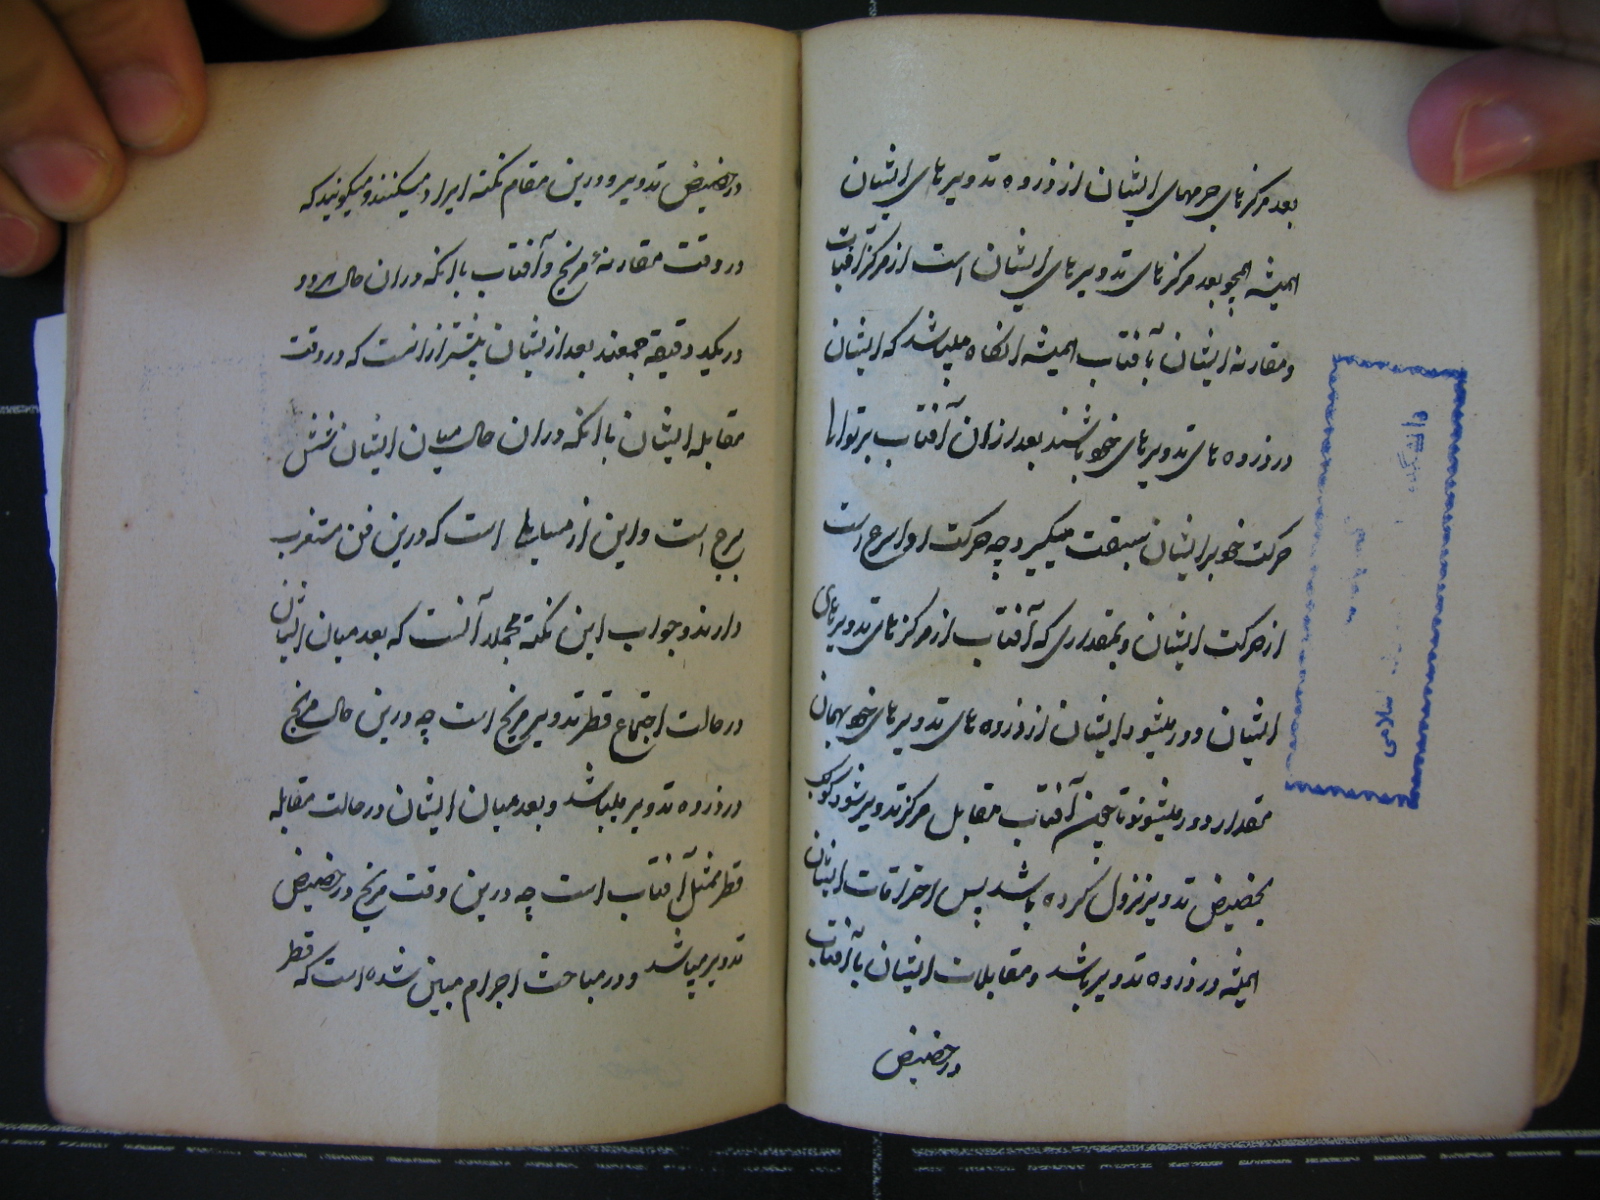 بعد مرکزهای جرمهای ایشان از ذروه تدویرهای ایشان
همیشه همچو بعد مرکزهای تدویرهای ایشان است از مرکز آفتاب
و مقارنه ایشان بآفتاب همیشه آنگاه میباشد که ایشان
در ذروه های تدویرهای خود باشند بعد از آن آفتاب بر توالی
حرکت خود بر ایشان سبقت میگیرد چه حرکت او اسرع است
از حرکت ایشان و بمقداری که آفتاب از مرکزهای تدویرهای
ایشان دور میشود ایشان از ذروه های تدویرهای خود بهمان
مقدار دور میشوند تا چون آفتاب مقابل مرکز تدویر شود کوکب
بحضیض تدویر نزول کرده باشد پس احتراقات ایشان
همیشه در ذروه تدویر باشد و مقابلات ایشان با آفتاب
در حضیض
در حضیض تدویر و درین مقام نکته ایراد میکنند و میگویند که
در وقت مقارنه مریخ و آفتاب با آنکه در آن حال هر دو
در یک دقیقه جمعند بعد ازیشان بیشتر از آنست که در وقت
مقابله ایشان با آنکه در آن حال میان ایشان شش
برج است و این از مسایلها است که درین فن مستغرب
دارند و جواب این نکته مجملا آنست که بعد میان ایشان
در حالت اجتماع قطر تدویر مریخ است چه درین حال مریخ
در ذروه تدویر میباشد و بعد میان ایشان در حالت مقابله
قطر ممثل آفتاب است چه درین وقت مریخ در حضیض
تدویر میباشد و در مباحث اجرام مبین شده است که قطر